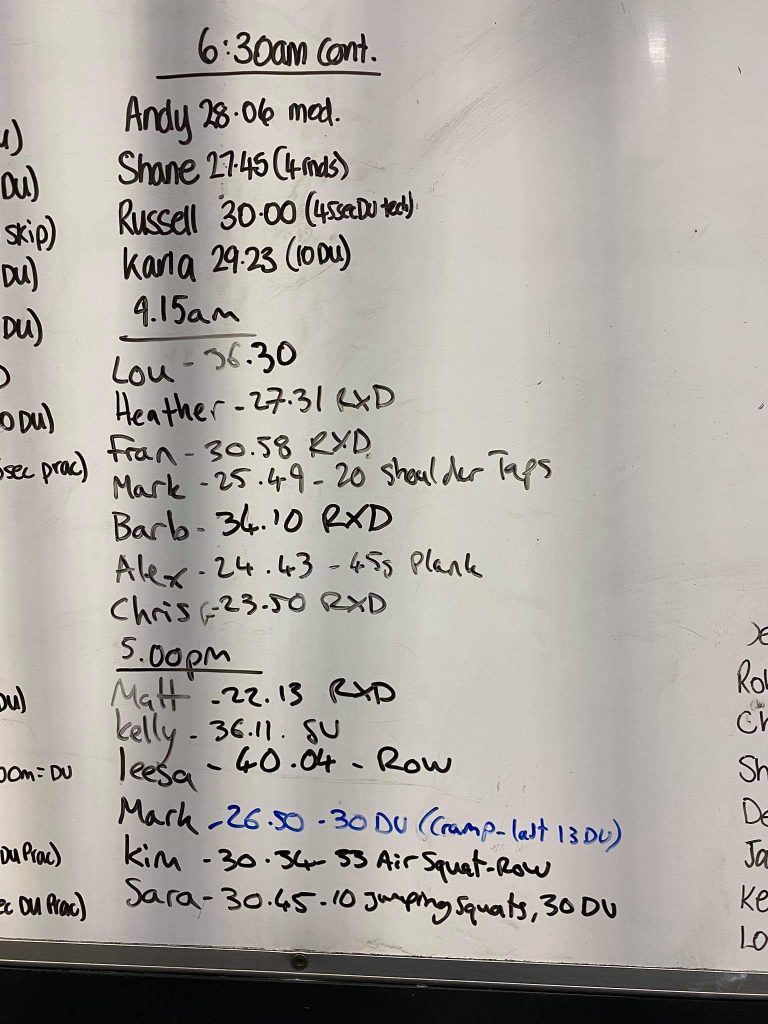 6:30am cont.
Andy 28.06 mod.
Shane 27.45 (4 rnds)
Russell 30.00 (45sec DU tech)
Kana 29.23 (10 DU)
9.15am
Lou - 36.30
Heather - 27.31 RXD
Fran - 30.58 RXD
Mark - 25.49 - 20 Shoulder Taps
Barb - 34.10 RXD
Alex - 24.43 - 45s Plank
Chris - 23.50 RXD
5.00pm
Matt - 22.13 RXD
Kelly - 36.11. SU
leesa - 40.04 - Row
Mark - 26.50 - 30 DU (Cramp - last 13 DU)
Kim - 30.34 - 53 Air Squat - Row
Sara - 30.45 - 10 Jumping Squats, 30 DU
DU)
skip)
DU)
DU)
DU)
sec prac)
DU)
00m = DU
DU Prac)
ec DU Prac)
Rol
Ch
Sh
De
Ja
Ke
Lo